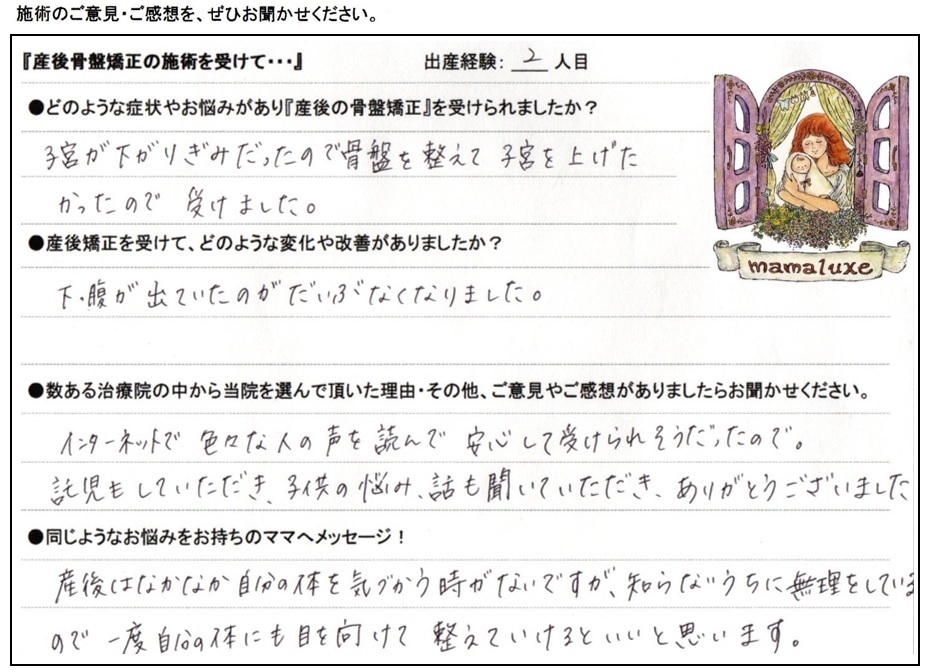 施術のご意見・ご感想を、ぜひお聞かせください。
『産後骨盤矯正の施術を受けて・・・』 出産経験： 2 人目
●どのような症状やお悩みがあり『産後の骨盤矯正』を受けられましたか？
子宮が下がりぎみだったので骨盤を整えて子宮を上げた
かったので 受けました。
mamaluxe
●産後矯正を受けて、どのような変化や改善がありましたか？
下腹が出ていたのがだいぶなくなりました。
●数ある治療院の中から当院を選んで頂いた理由・その他、ご意見やご感想がありましたらお聞かせください。
インターネットで 色々な人の声を読んで 安心して受けられそうだったので。
託児もしていただき、子供の悩み、話も聞いていただき、ありがとうございました
●同じようなお悩みをお持ちのママへメッセージ！
産後はなかなか自分の体を気づかう時がないですが、知らないうちに無理をしていま
ので 一度自分の体にも目を向けて 整えていけるといいと思います。